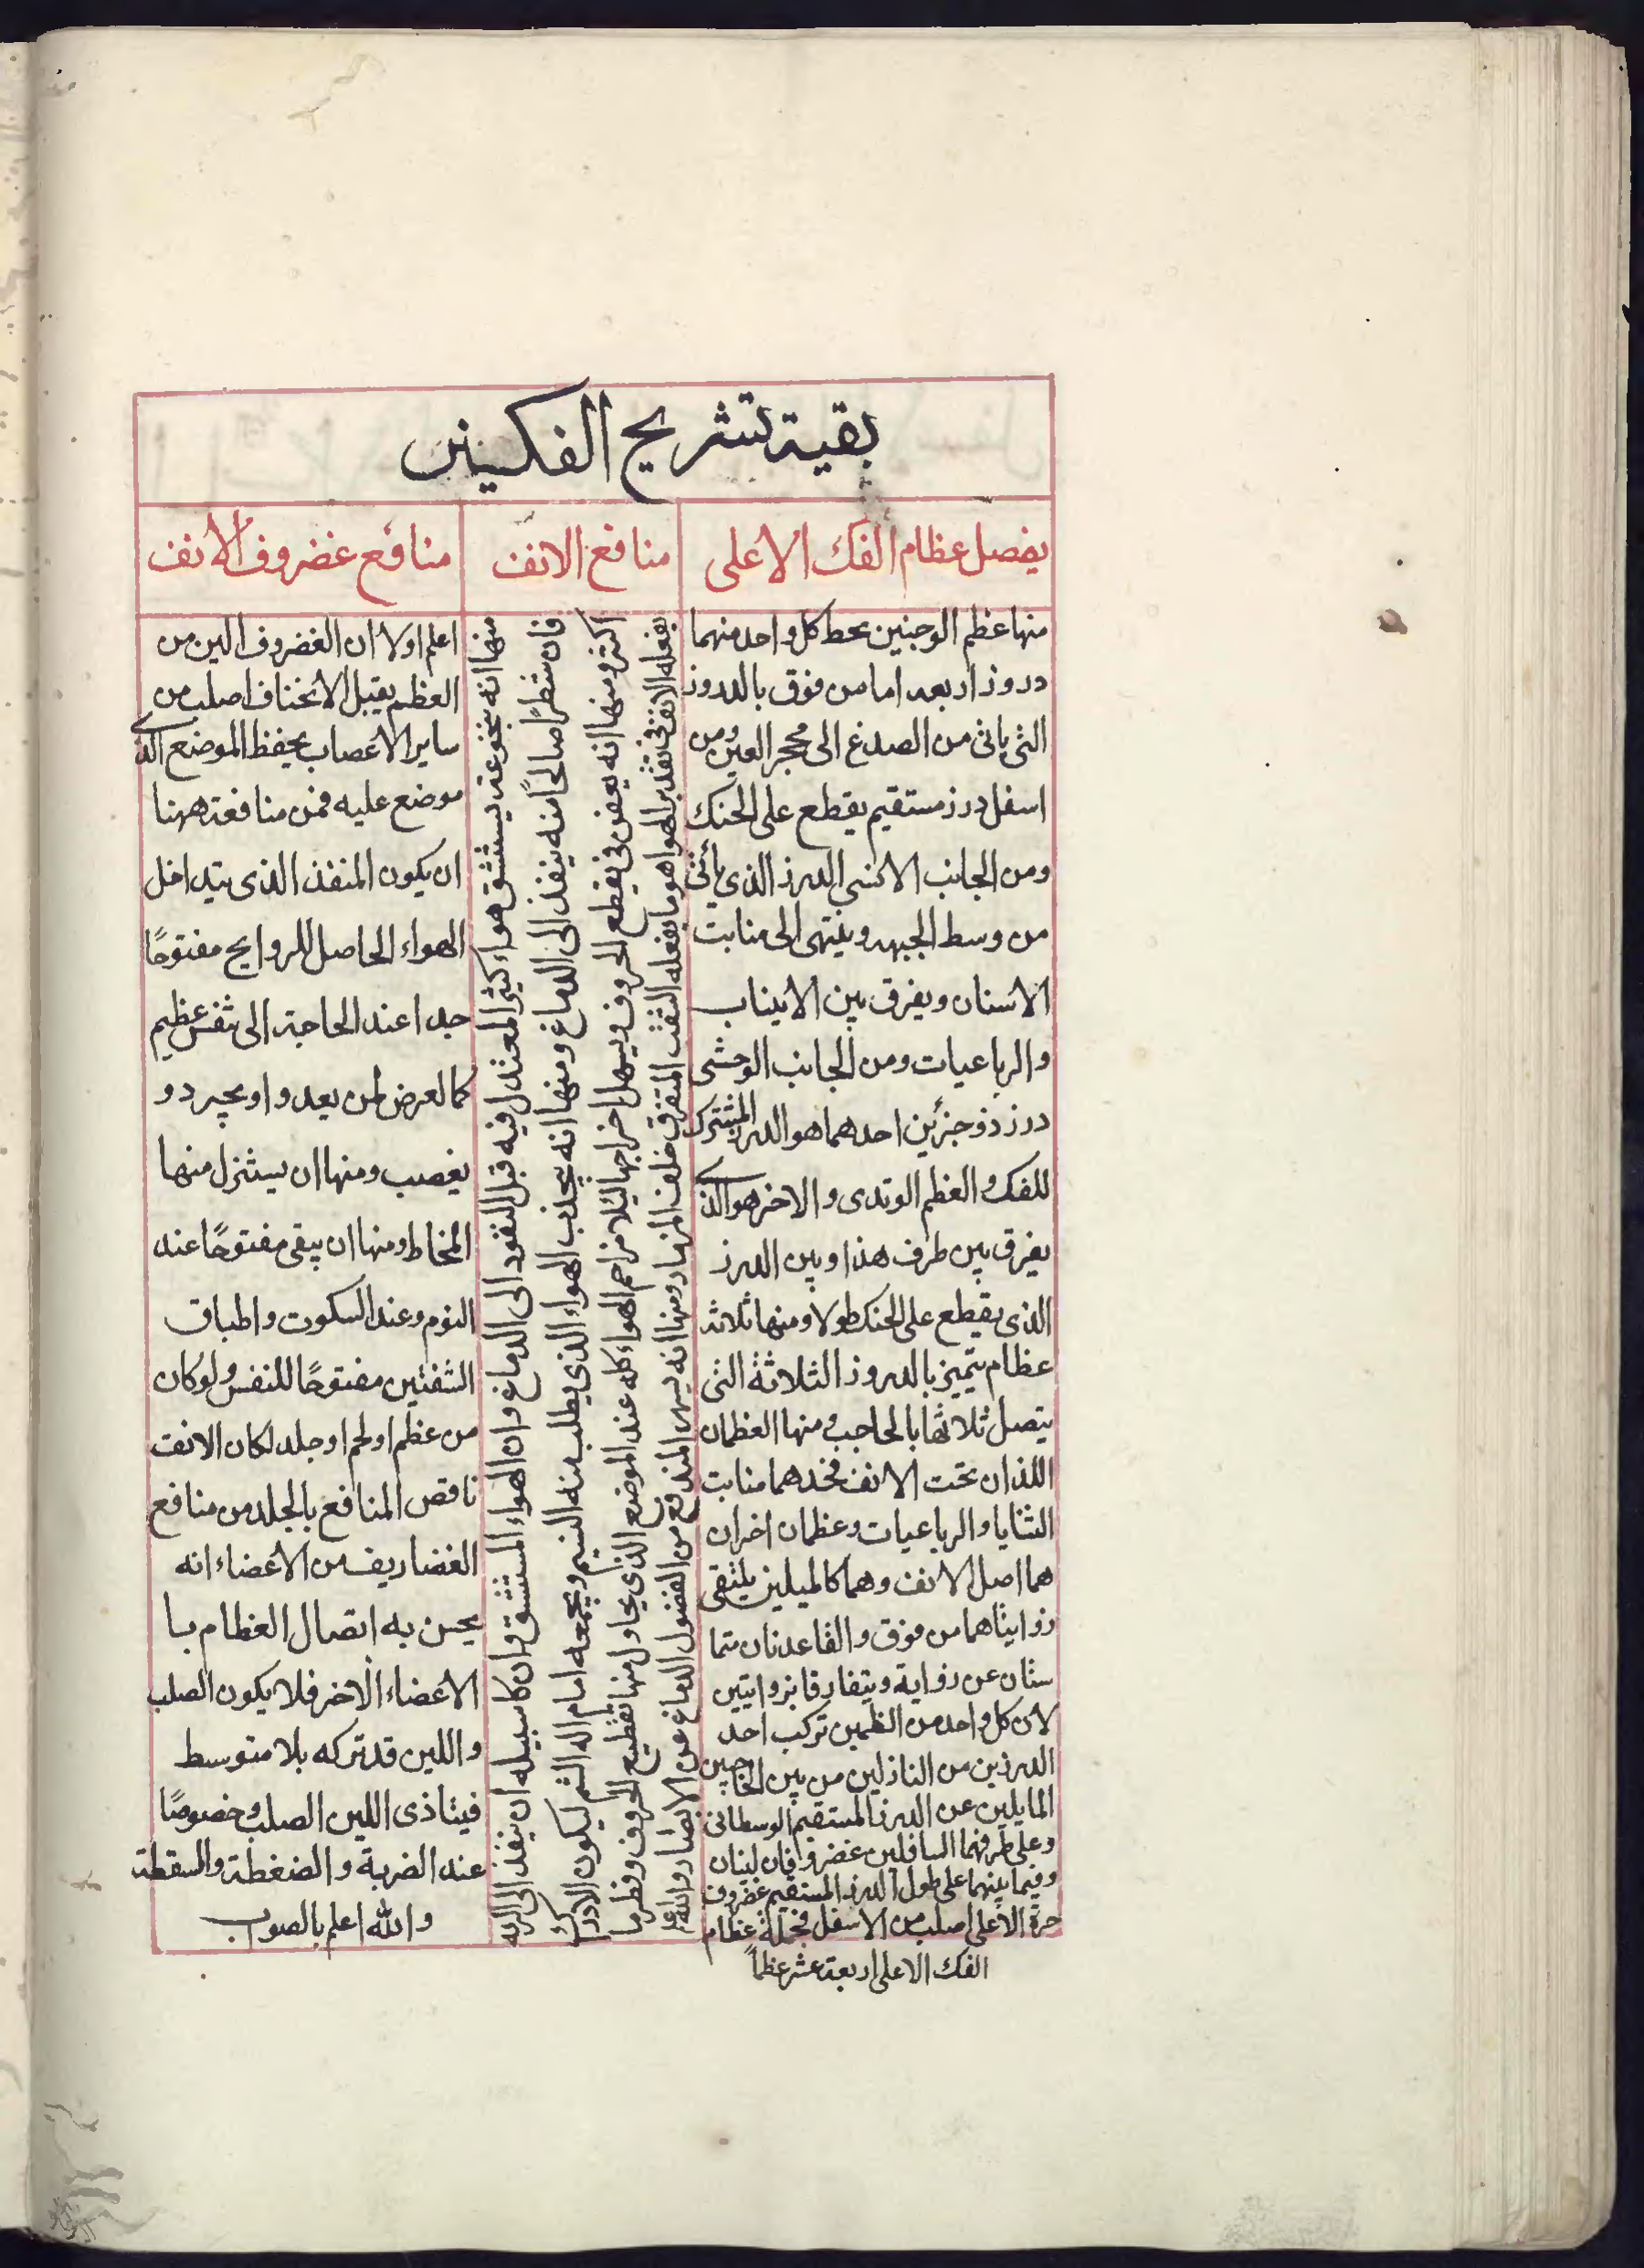 بقية تشريح الفكين
يفصل عظام الفك الاعلى
منها عظم الوجنين يحط كل واحد منهما
دروز اربعه اما من فوق بالدروز
التى ياتى من الصدغ الى محجر العين ومن
اسفل درز مستقيم يقطع على الحنك
ومن الجانب الانسى الدرز الذى يأتى
من وسط الجبهه وينتهى الى منابت
الاسنان ويفرق بين الانياب
والرباعيات ومن الجانب الوحشى
درز ذو جزئين احدهما هو الدرز المشترك
للفك والعظم الوتدى والاخر هو الذى
يفرق بين طرف هذا وبين الدرز
الذى يقطع على الحنك طولا ومنها ثلاثة
عظام يتميز بالدروز الثلاثة التى
يتصل ثلاثها بالحاجب ومنها العظمان
اللذان تحت الانف فخدهما منابت
الثنايا والرباعيات وعظمان اخران
هما اصل الانف وهما كالميلين يلتقى
زوايتاهما من فوق والقاعدتان متما
ستان عن زواية ويتفارقا بزوايتين
لان كل واحد من الظمين تركب احد
الدرزين من النازلين من بين الحاجبين
المايلين عن الدرز المستقيم الوسطانى
وعلى طرفهما السافلين غضروفان لينان
وفيما بينهما على طول الدرز المستقيم غضروف
حزة الاعلى اصلب من الاسفل فجملة عظام
الفك الاعلى اربعة عشر عظماً
منافع الانف
منها انه بتجوعته يستنشق هواء كثيرا لمعتدل فيه قبل النفود الى الدماغ وان الهواء المستنشق وان كا سبيله ان ينفذ الى الريه
فان شطرًا صالحًا منه ينفذ الى الدماغ ومنها انه يجذب الهواء الذى يطلب منه النسيم ويجمعه امام اله الشم ليكون الادراك
اكثر ومنها انه يعفن فى تقطع الحروف ويسهل اخراجها ليلا مزاحم الهواء كله عند الموضع الذى يحاول منها تقطيع الحروف وفطر ما
يفعله الانف فى تقدير الهوا هو ما يفعله الثقب المتفرق خلف المزمار ومنها انه يسر المندفع من الفضول الدماغ عن الابصار والله اعلم
منافع غضروف الانف
اعلم اولا ان الغضروف الين من
العظم يقبل الانخناف اصلب من
ساير الاعصاب يحفظ الموضع الذى
موضع عليه فمن منافعة ههنا
ان يكون المنفذ الذى يتداخل
الهواء الحاصل للروايح مفتوحًا
جدا عند الحاجة الى تنفس عظيم
كما لعرض لمن يعدو او يجرد و
يغصب ومنها ان يستنزل منها
المخاط ومنها ان يبقى مفتوحًا عند
النوم وعند السكوت واطباق
الشفتين مفتوحًا للنفس ولو كان
من عظم او لحم او جلد لكان الانف
ناقص المنافع بالجلد من منافع
الغضاريف من الاعضاء انه
يحسن به اتصال العظام با
الاعضاء الاخر فلا يكون الصلب
واللين قد تركه بلا متوسط
فيتاذى اللين الصلب وخصوصًا
عند الضربة والضغطة والسقطة
والله اعلم بالصوب